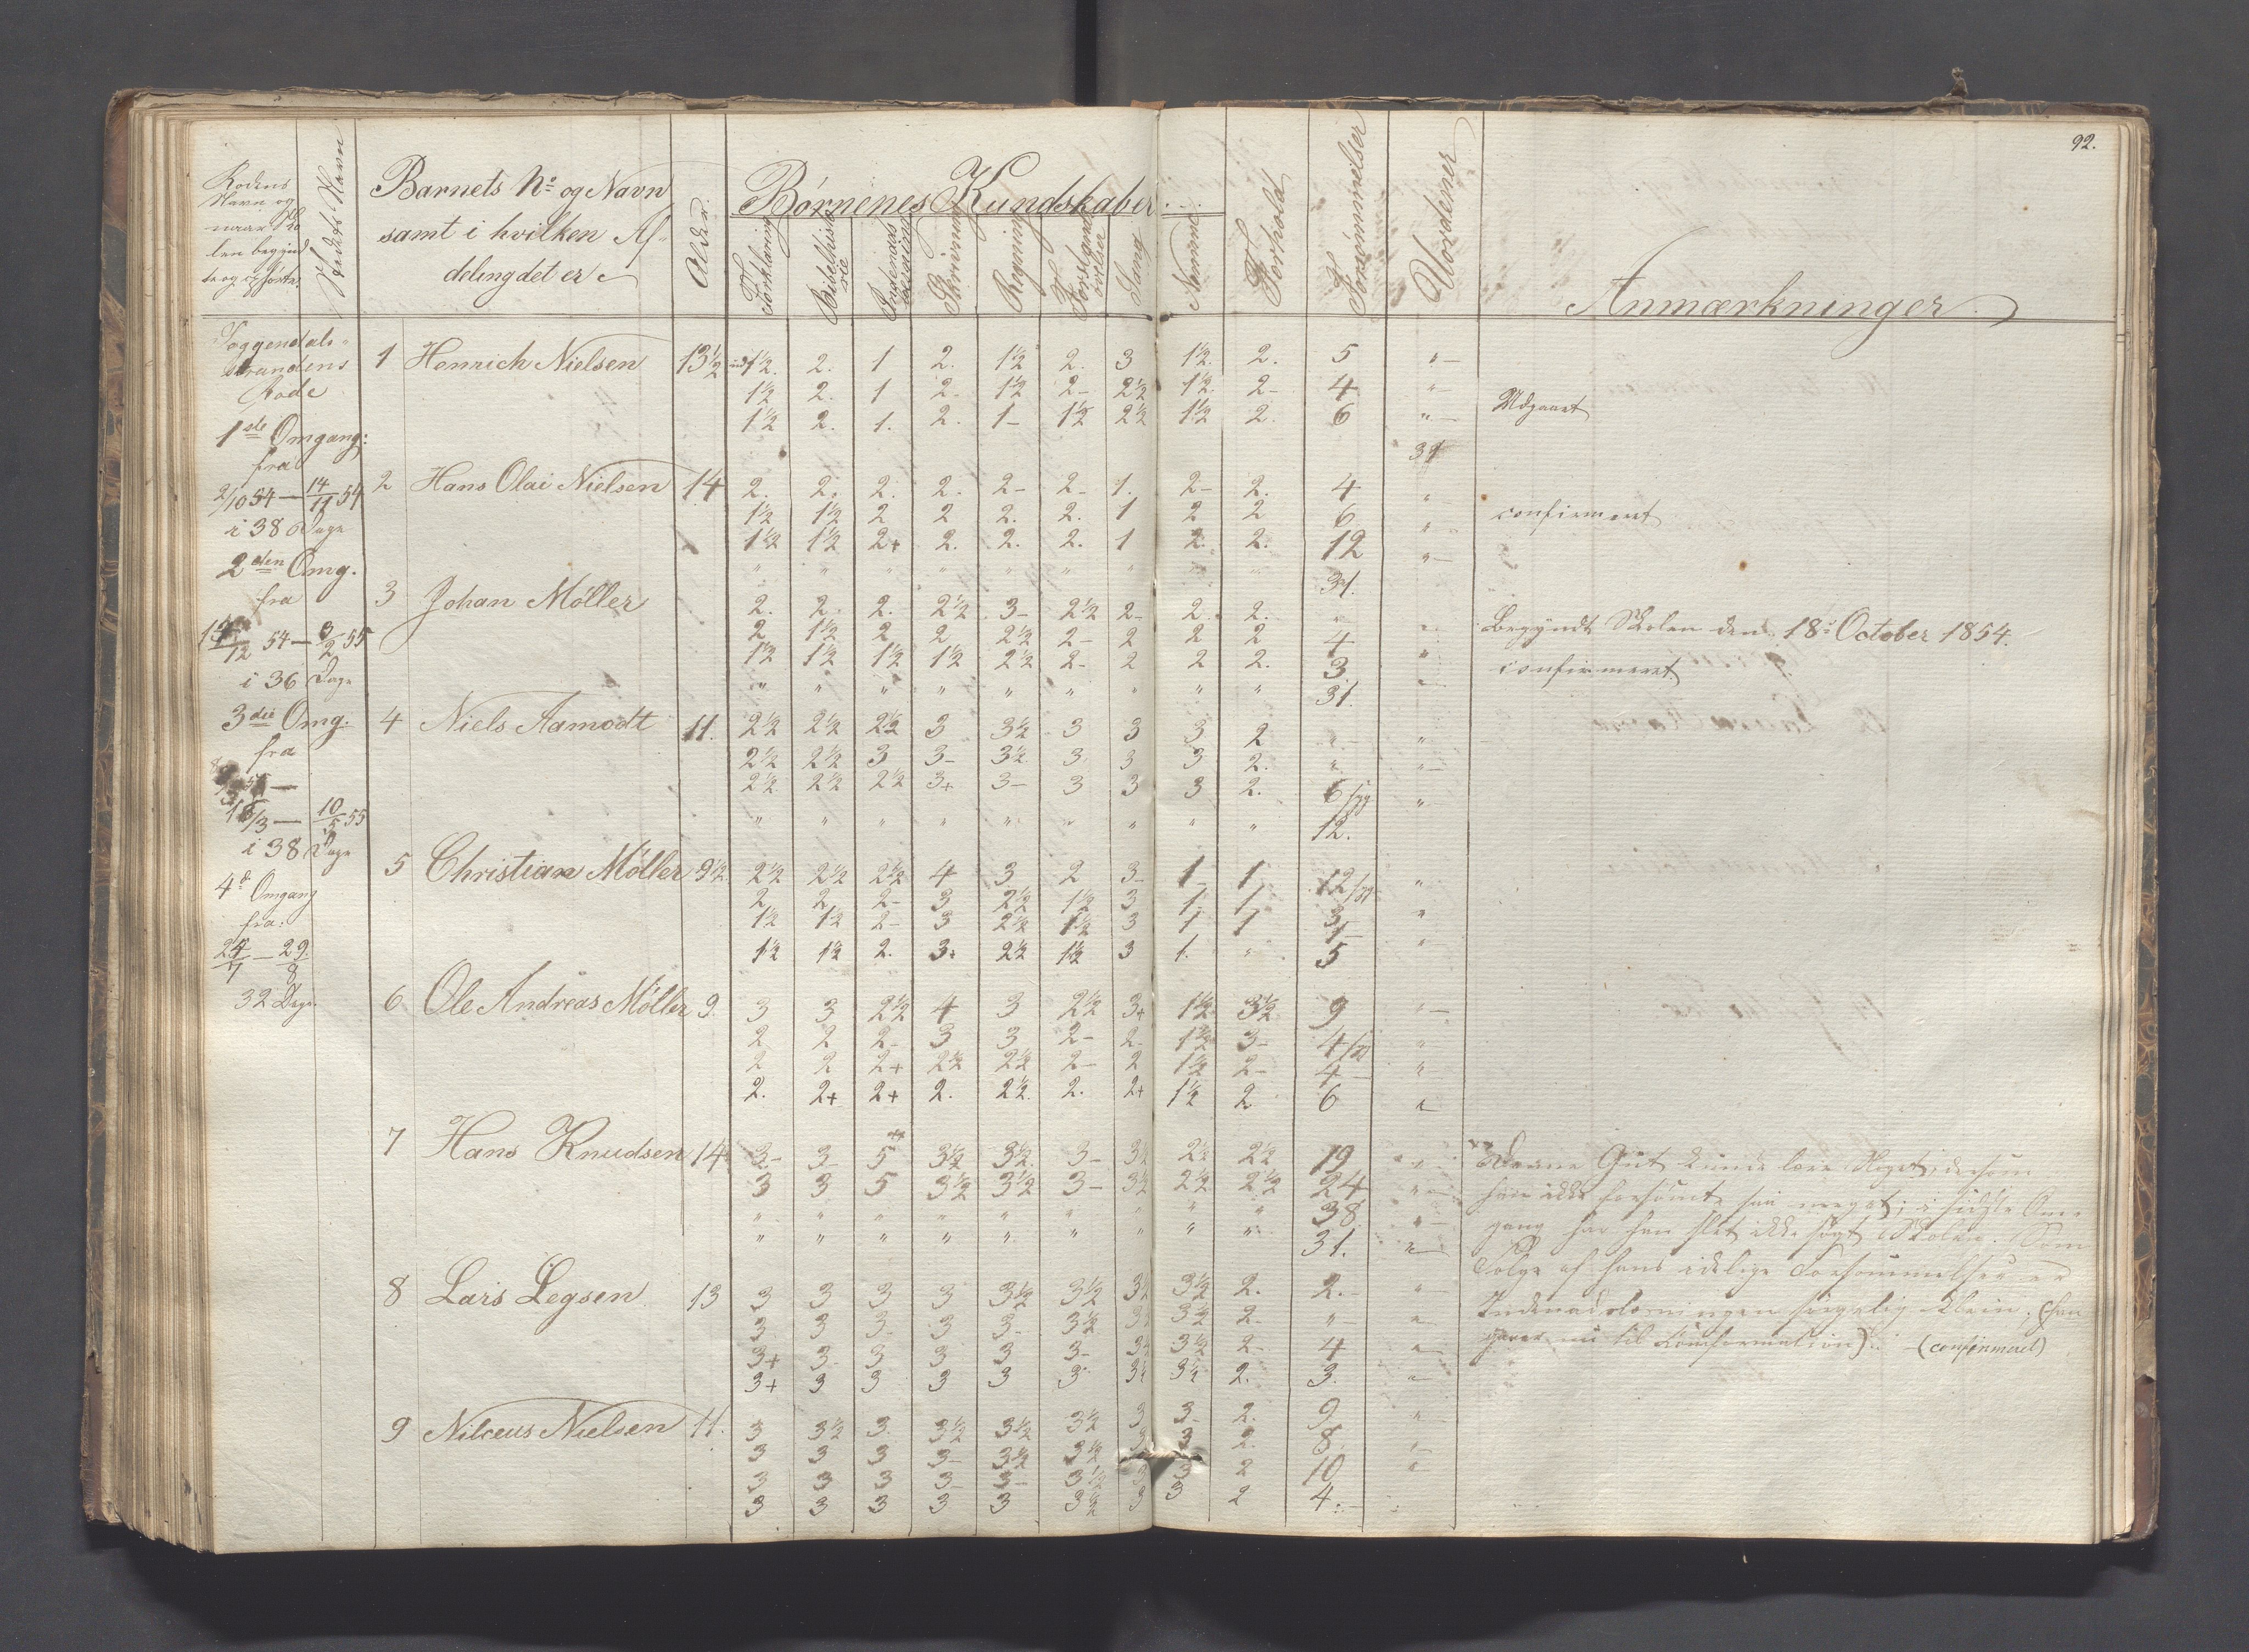 92.
Rodens
Navn og
naar Sko
len begynd
te og ophørte.
Stedets Navn
Barnets No og Navn
samt i hvilken Af-
deling det er
Alder.
Børnenes Kundskaber
Forklaring
Bibelhisto
rie
Indenads
læsning
Skrivning
Regning
Forstands
øvelser
Sang
Nemme
Forhold
Forsømmelser
Uordener
Anmærkninger
Foggendals-
strandens
Rode
1ste Omgang:
fra
2/10 54 — 14/11 54
i 38 Dage
2den Omg.
fra
12 54 — 3/2 55
i 36 Dage
3die Omg.
fra
/3 — 10/5 55
i 38 Dage
4d Omgang
fra:
24/7 — 29/8
32 Dage
1 Henrich Nielsen 13½ 1½. 2. 1 2. 1½ 2. 3 1½. 2. 5 „
1½ 2. 1 2- 1½ 2- 2½ 1½ 2- 4 „ Udgaaet
1½ 2. 1. 2. 1- 1½ 2½ 1½ 2. 6 „
31
2 Hans Olai Nielsen 14 2. 2. 2. 2. 2- 2- 1. 2- 2. 4 „
1½ 1½ 2 2 2. 2. 1 2 2 6 „ confirmeret
1½ 1½ 2+ 2. 2. 2. 1 2. 2. 12 „
„ „ „ „ „ „ „ „ „ 31.
3 Johan Møller 2. 2. 2. 2½ 3- 2½ 2- 2 2. „ „ Begyndt Skolen den 18de October 1854.
2 1½ 2 2 2½ 2- 2 2 2 4 „
1½ 1½ 1½ 1½ 2½ 2- 2 2 2. 3 „ confirmeret
„ „ „ „ „ „ „ „ „ 31.
4 Niels Aamodt 11. 2½ 2½ 2½ 3 3½ 3 3 3 2 „ „
2½ 2½ 3 3- 3½ 3 3 3 2. „ „
2½ 2½ 2½ 3+ 3- 3 3 3 2. 6/syg „
„ „ „ „ „ „ „ „ „ 12.
5 Christian Møller 9½. 2½ 2½ 2½ 4 3 2 3- 1- 1 12 „
2 2 2- 3 2½ 1½ 3 1. 1 3 „
1½ 1½ 2- 3 2½ 1½ 3 1 1 1- „
1½ 1½ 2. 3+ 2½ 1½ 3 1. „ 5
6 Ole Andreas Møller 9. 3 3 2½ 4 3 2½ 3+ 1½ 3½ 9 „
2 2 2- 3 3 2- 2- 1½ 3- 4 „
2 2 2+ 2½ 2½ 2- 2 1½ 2- 4- „
2. 2+ 2+ 2. 2½ 2. 2+ 1½ 2 6 „
7 Hans Knudsen 14 3- 3- 5 3½ 3½ 3- 3½ 2½ 2½ 19 „ Denne Gut kunde lære Noget, dersom
3 3 5 3½ 3½ 3- 3½ 2½ 2½ 24 „ han ikke forsømt saa meget; i sidste Om-
„ „ „ „ „ „ „ „ „ 38 „ gang har han slet ikke søgt Skolen. Som
„ „ „ „ „ „ „ „ „ 31. „ Følge af hans idelige Forsømmelser er
8 Lars Legsen 13 3 3 3 3 3½ 3½ 3½ 3½ 2. 2.- „ Indenadslæsningen sørgelig klein; (han
3 3 3- 3 3- 3½ 3½ 3½ 2- „ „ gaaer nu til Confirmation). - (confirmeret)
3+ 3- 3 3 3 3- 3½ 3½ 2- 4 „
3+ 3 3 3 3 3- 3½ 3½ 2. 3. „
9 Nilceus Nielsen 11. 3 3½ 3. 3½ 3½ 3½ 3 3- 2. 9 „
3 3 3 3- 3½ 3½ 3 3 2. 8 „
3 3 3 3- 3- 3½ 3 3 2 10 „
3 3 3 3 3 3½ 3 3 2 4.